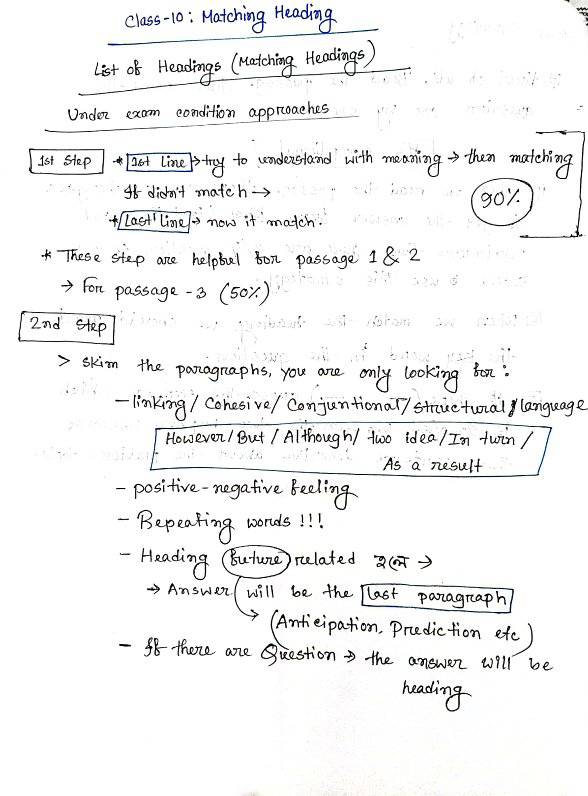 Class-10: Matching Heading
List of Headings (Matching Headings)
Under exam condition approaches
1st Step * 1st Line → try to understand with meaning → then matching
If didn't match →
* Last Line → now it match.
90%
* These step are helpful for passage 1 & 2
→ For passage - 3 (50%)
2nd Step
> Skim the paragraphs, you are only looking for :
- linking / Cohesive / Conjuntional / structural / language
However / But / Although / two idea / In turn /
As a result
- positive - negative feeling
- Repeating words !!!
- Heading future related হলে →
→ Answer will be the last paragraph
→ (Anticipation, Prediction etc)
- If there are Question → the answer will be
heading